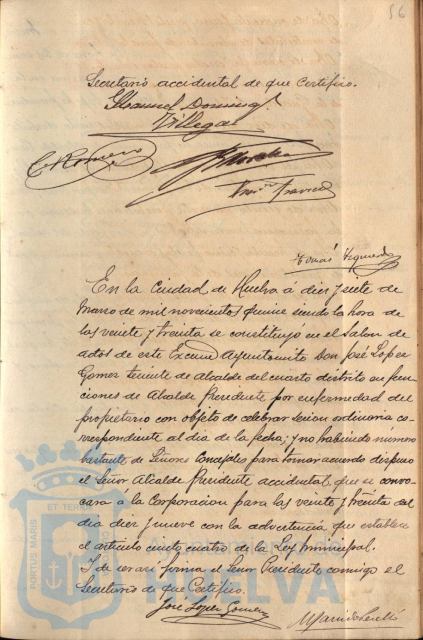 56
Secretario accidental de que Certifico.
Manuel Domingz.
Villegas
C. Romero
J. Morales
Tomás Izquierdo
En la Ciudad de Huelva á diez y siete de
Marzo de mil novecientos quince siendo la hora de
las veinte y treinta se constituyó en el Salon de
actos de este Excmo Ayuntamiento Don José Lopez
Gomez teniente de Alcalde del cuarto distrito en fun-
ciones de Alcalde Presidente por enfermedad del
propietario con objeto de celebrar sesion ordinaria co-
rrespondiente al dia de la fecha; y no habiendo número
bastante de Señores Concejales para tomar acuerdo dispuso
el Señor Alcalde Presidente accidental, que se convo-
cara á la Corporacion para las veinte y treinta del
dia diez y nueve con la advertencia que establece
el articulo ciento cuatro de la Ley municipal.
Y de ser así firma el Señor Presidente conmigo el
Secretario de que Certifico.
José Lopez Gomez
PORTUS MARIS
ET TERRÆ
Ayuntamiento de
HUELVA